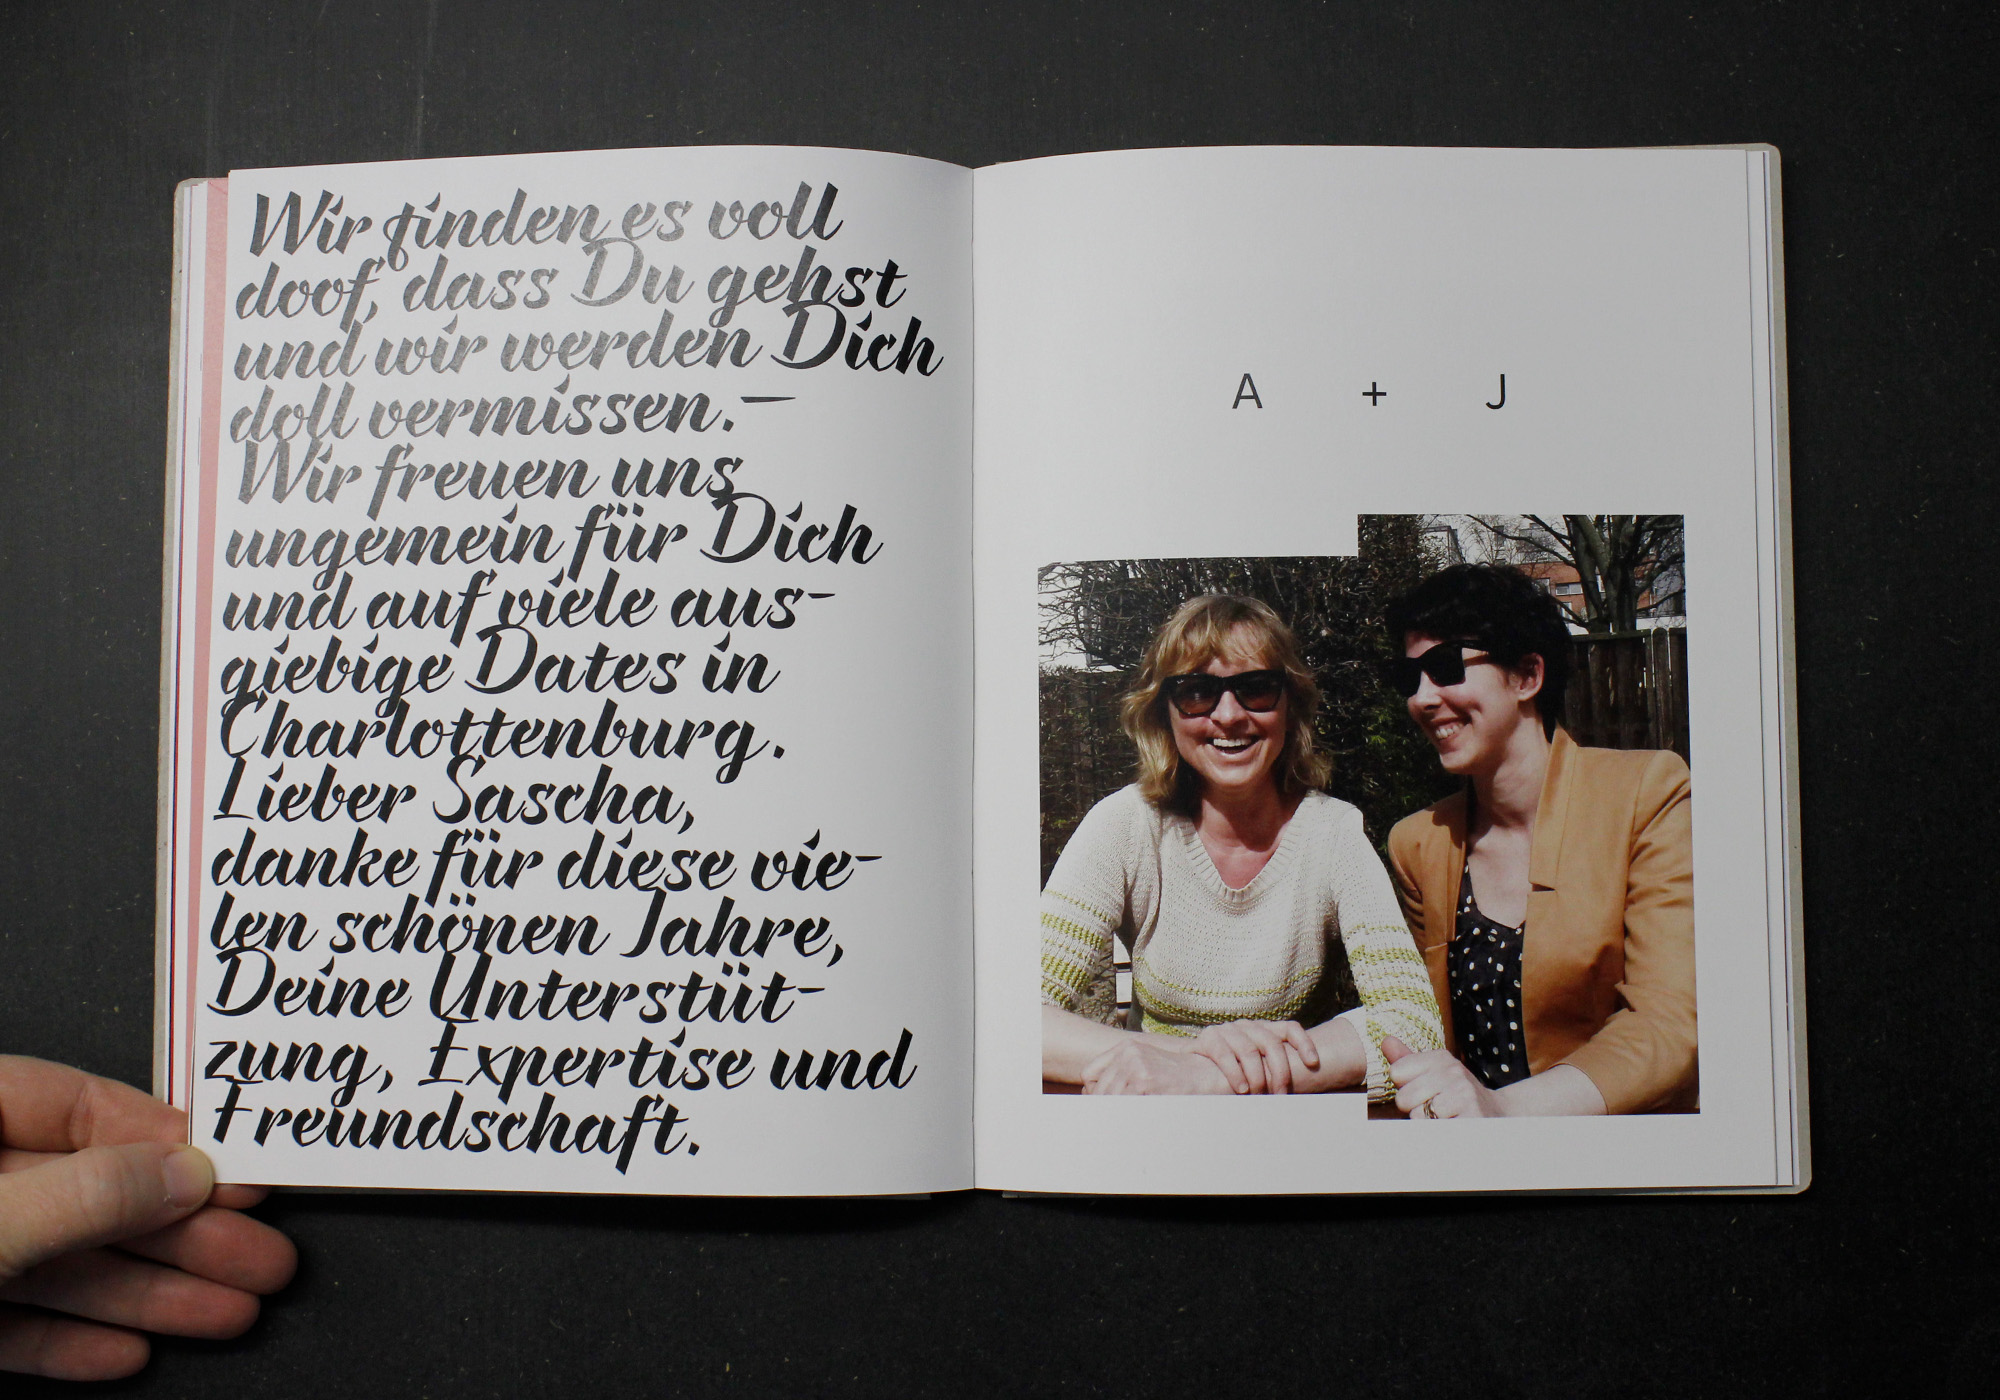 Wir finden es voll
doof, dass Du gehst
und wir werden Dich
doll vermissen.–
Wir freuen uns
ungemein für Dich
und auf viele aus-
giebige Dates in
Charlottenburg.
Lieber Sascha,
danke für diese vie-
len schönen Jahre,
Deine Unterstüt-
zung, Expertise und
Freundschaft.
A + J